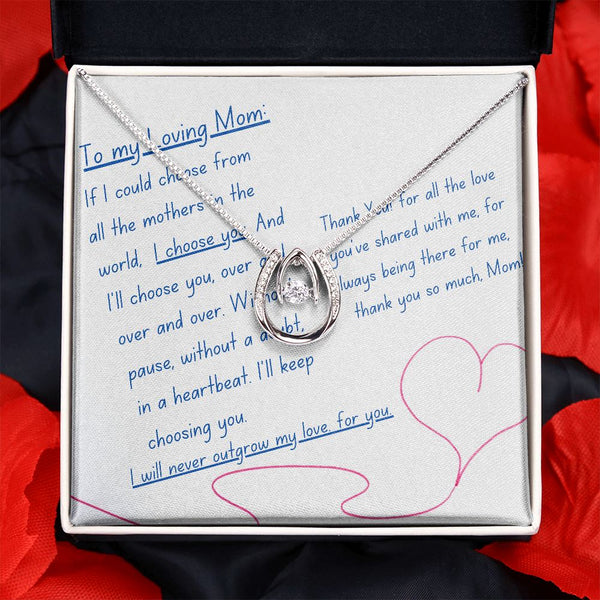 To my Loving Mom:
If I could choose from
all the mothers in the
world, I choose you. And
I'll choose you, over and
over and over. Without
pause, without a doubt,
in a heartbeat. I'll keep
choosing you.
I will never outgrow my love for you.
Thank You for all the love
you've shared with me, for
always being there for me,
thank you so much, Mom!